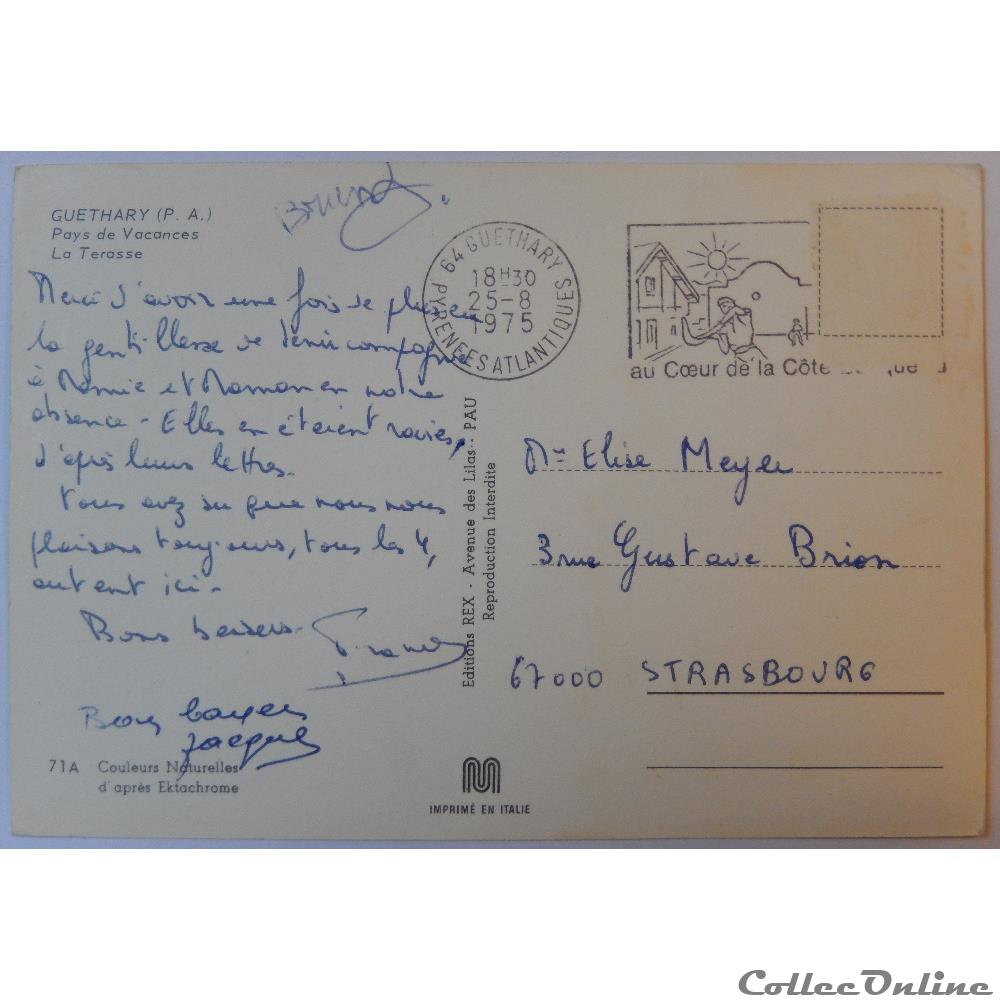 GUETHARY (P. A.)
Pays de Vacances
La Terasse
64 GUETHARY
18H30
25-8
1975
PYRENEES ATLANTIQUES
au Cœur de la Côte
Merci d'avoir une fois de plus eu
la gentillesse de tenir compagnie
à Mamie et Maman en notre
absence - Elles en étaient ravies,
d'après leurs lettres.
Vous avez su que nous nous
plaisons toujours, tous les 4,
autant ici -
Bons baisers.
Bons baisers
Jacques
Editions REX - Avenue des Lilas - PAU
Reproduction Interdite
Mme Elise Meyer
3 rue Gustave Brion
67000 STRASBOURG
71A Couleurs Naturelles
d'après Ektachrome
IMPRIMÉ EN ITALIE
CollecOnline